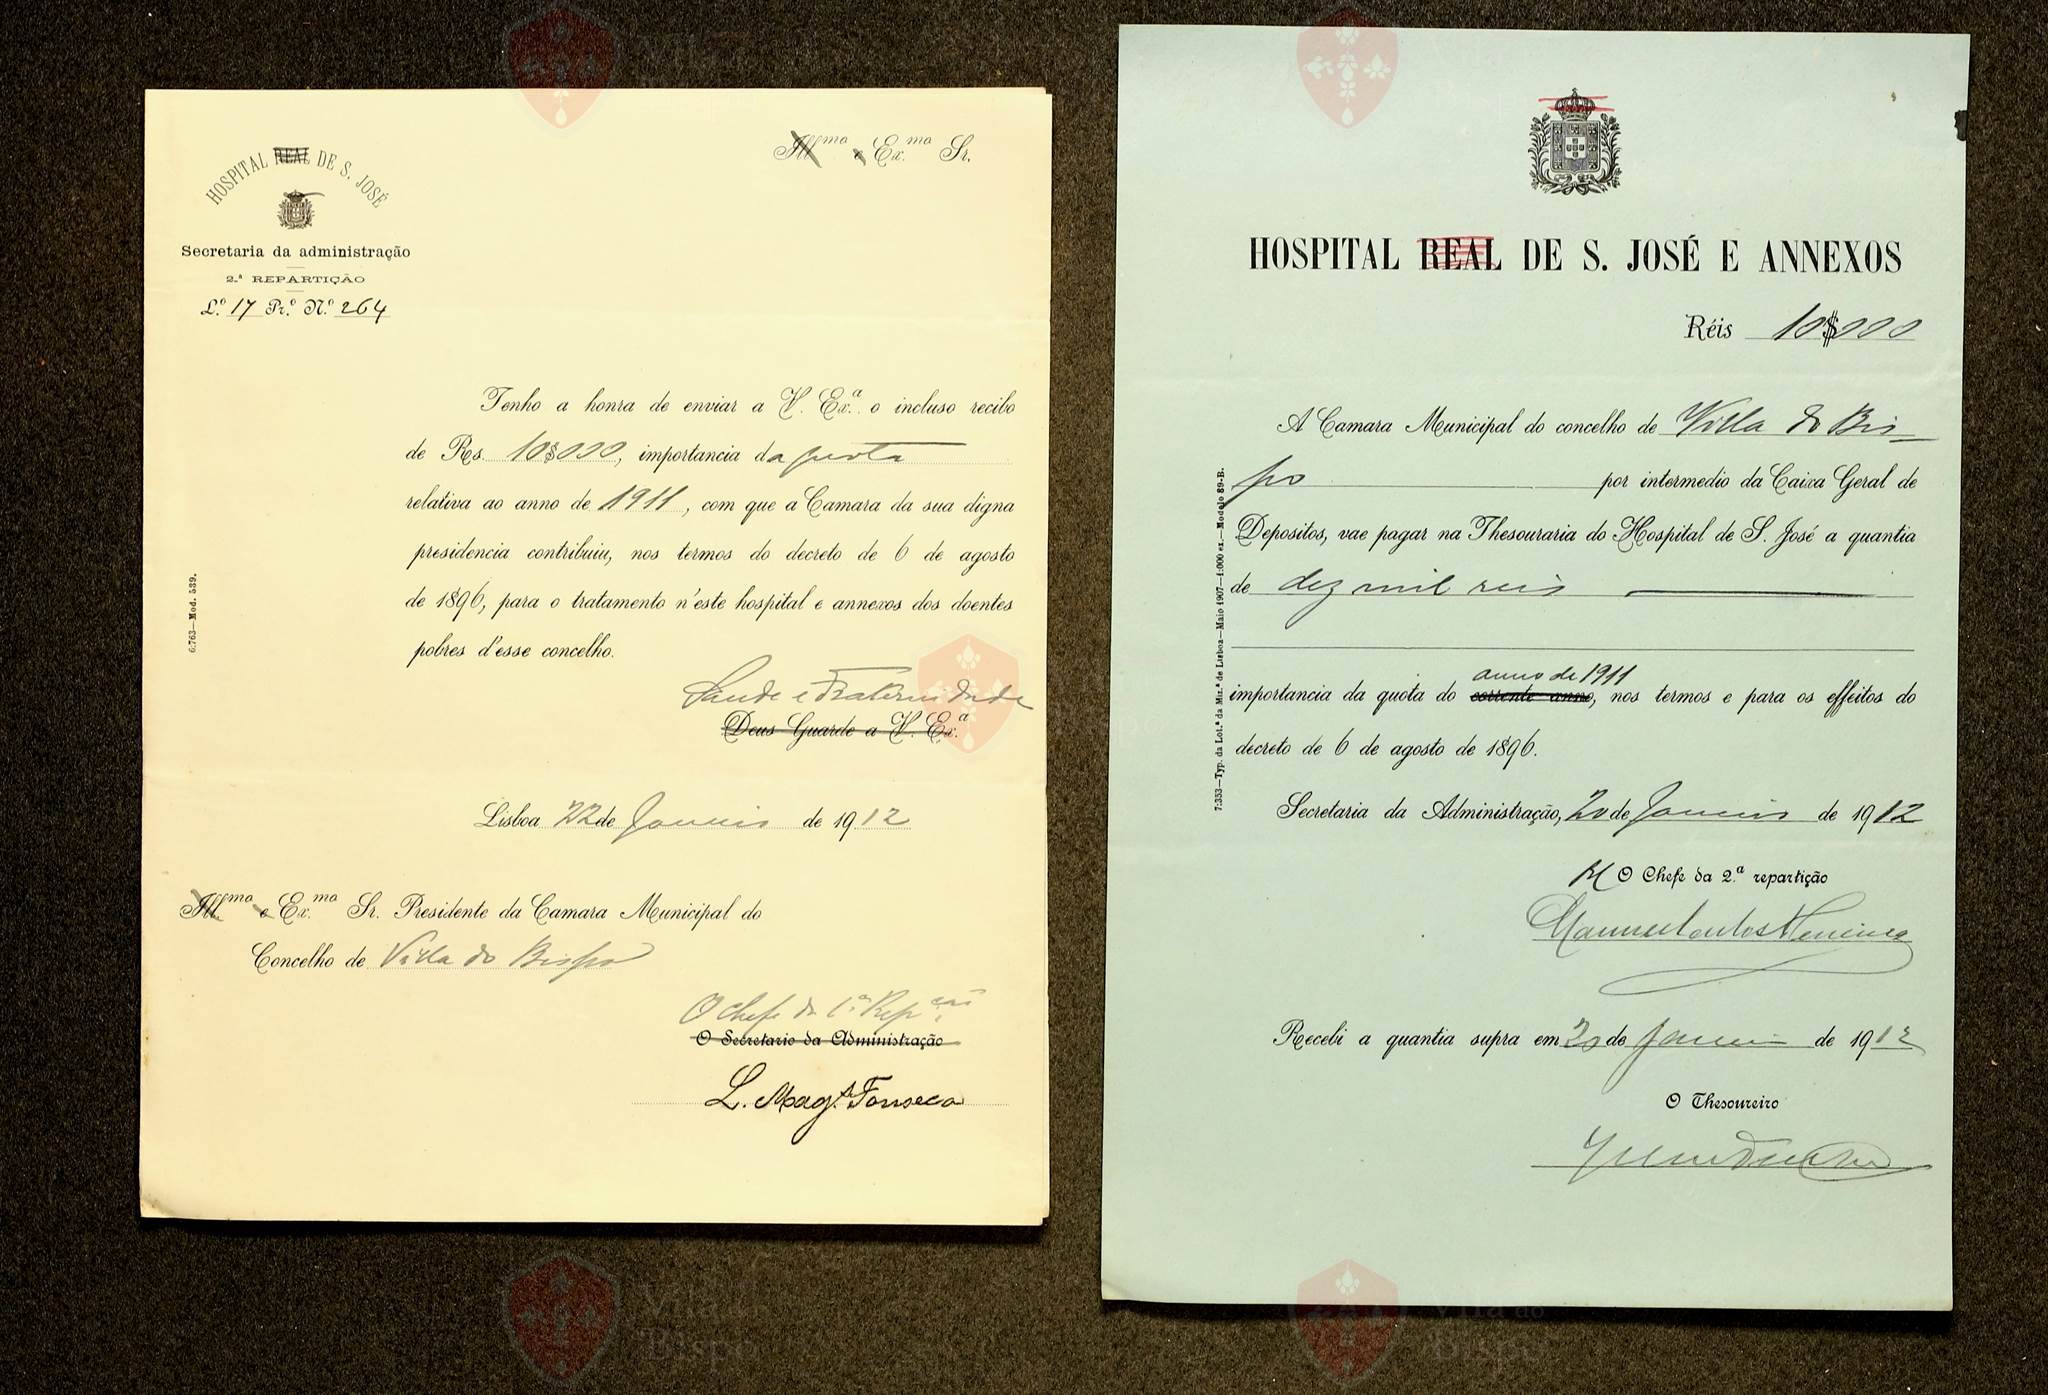 Illmo e Ex.mo Sr.
HOSPITAL REAL DE S. JOSÉ
Secretaria da administração
2.ª REPARTIÇÃO
L.º 17 Pr.º N.º 264
Tenho a honra de enviar a V. Ex.ª o incluso recibo
de Rs. 10$000, importancia da quota
relativa ao anno de 1911, com que a Camara da sua digna
presidencia contribuiu, nos termos do decreto de 6 de agosto
de 1896, para o tratamento n'este hospital e annexos dos doentes
pobres d'esse concelho.
Saude e Fraternidade
Deus Guarde a V. Ex.ª
Lisboa 22 de Janeiro de 1912
Illmo e Ex.mo Sr. Presidente da Camara Municipal do
Concelho de Villa do Bispo
O Chefe da 1.ª Rep.ção
O Secretario da Administração
L. Mag.es Fonseca
6:763—Mod. 539.
HOSPITAL REAL DE S. JOSÉ E ANNEXOS
Réis 10$000
A Camara Municipal do concelho de Villa do Bis-
po por intermedio da Caixa Geral de
Depositos, vae pagar na Thesouraria do Hospital de S. José a quantia
de dez mil reis
anno de 1911
importancia da quota do corrente anno, nos termos e para os effeitos do
decreto de 6 de agosto de 1896.
Secretaria da Administração, 20 de Janeiro de 1912
O Chefe da 2.ª repartição
Recebi a quantia supra em 20 de Janeiro de 1912
O Thesoureiro
7:353—Typ. da Lot.ª da Miz.ª de Lisboa—Maio 1907—1:000 ex.—Modelo 89-B.
Vila do
Bispo
Vila do
Bispo